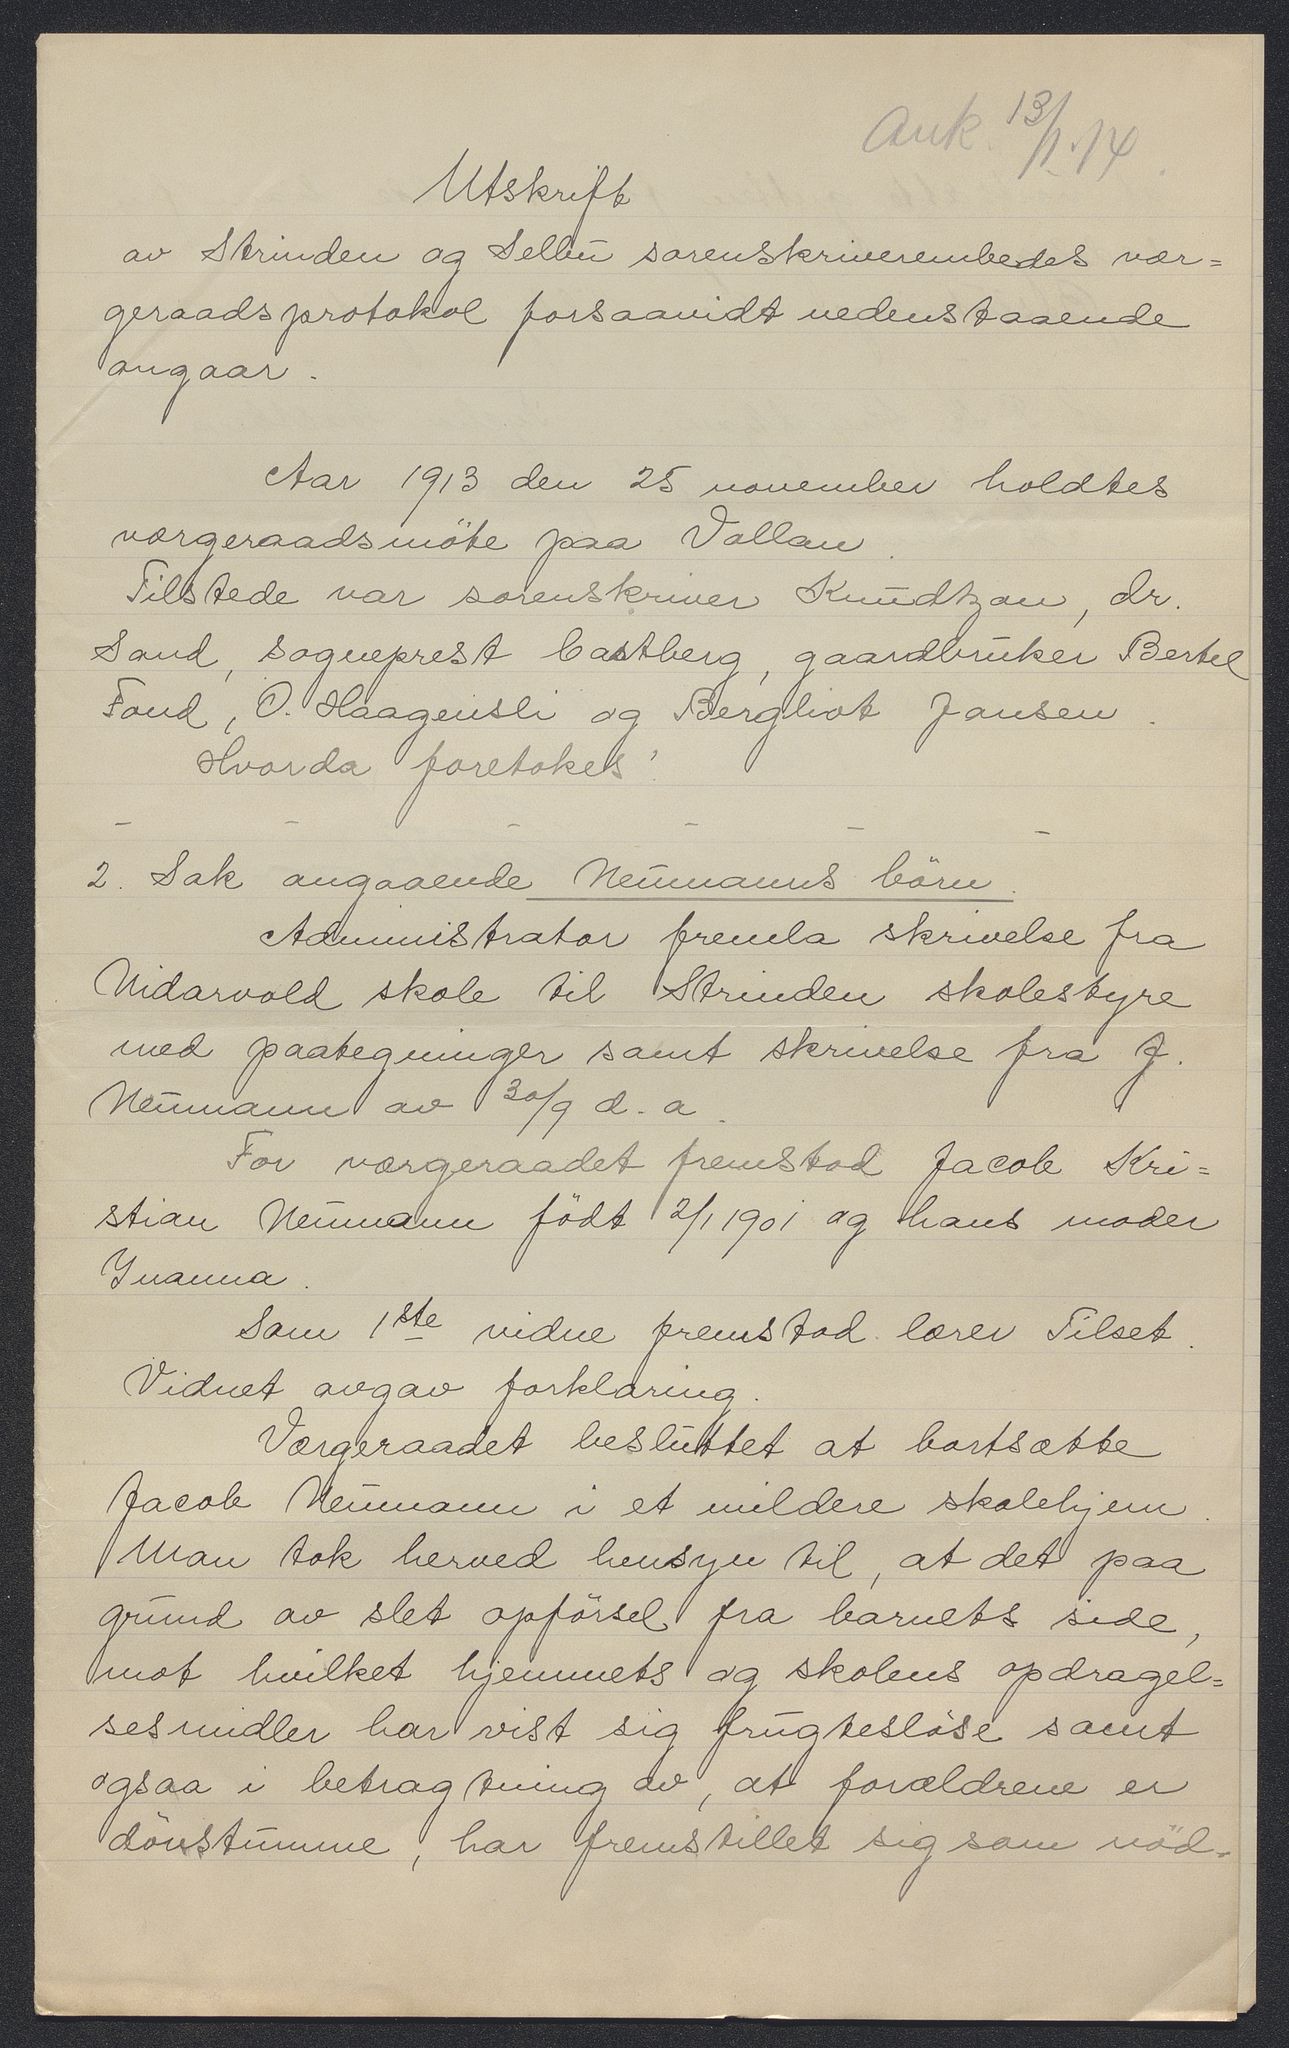 Ank. 13/1.14.
Utskrift
av Strinden og Selbu sorenskriverembedes vær=
geraadsprotokol forsaavidt nedenstaaende
angaar.
Aar 1913 den 25 november holdtes
værgeraadsmöte paa Vollan.
Tilstede var sorenskriver Knudtzon, dr.
Sand, sogneprest Castberg, gaardbruker Bertel
Fond, O. Haagensli og Bergliot Jansen.
Hvorda foretokes:
- - - - - -
2. Sak angaaende Neumanns börn.
Administrator fremla skrivelse fra
Nidarvold skole til Strinden skolestyre
med paategninger samt skrivelse fra J.
Neumann av 30/9 d. a.
For værgeraadet fremstod Jacob Kri=
stian Neumann födt 2/1 1901 og hans moder
Ynanna.
Som 1ste vidne fremstod lærer Tilset.
Vidnet avgav forklaring.
Værgeraadet besluttet at bortsætte
Jacob Neumann i et mildere skolehjem.
Man tok herved hensyn til, at det paa
grund av slet opförsel fra barnets side,
mot hvilket hjemmets og skolens opdragel=
sesmidler har vist sig frugteslöse samt
ogsaa i betragtning av, at forældrene er
dövstumme, har fremstillet sig som nöd-